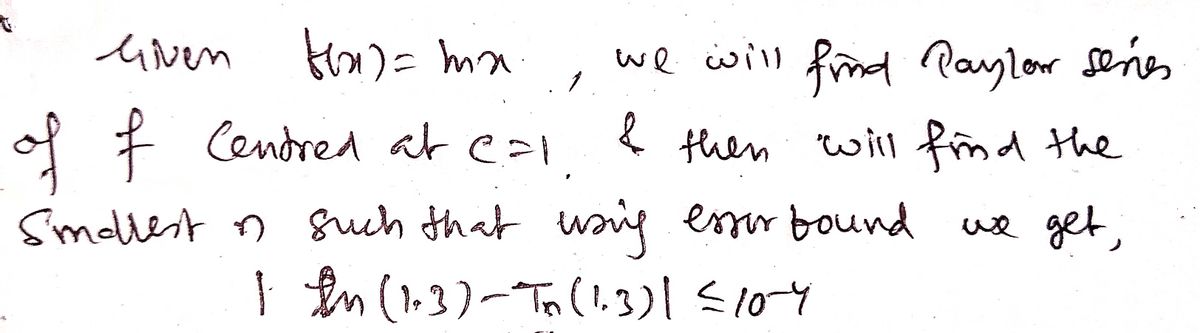 Given f(x) = ln x , we will find Taylor series
of f Centred at c=1 & then will find the
Smallest n such that using error bound we get,
| ln (1.3) - Tn (1.3) | ≤ 10-4